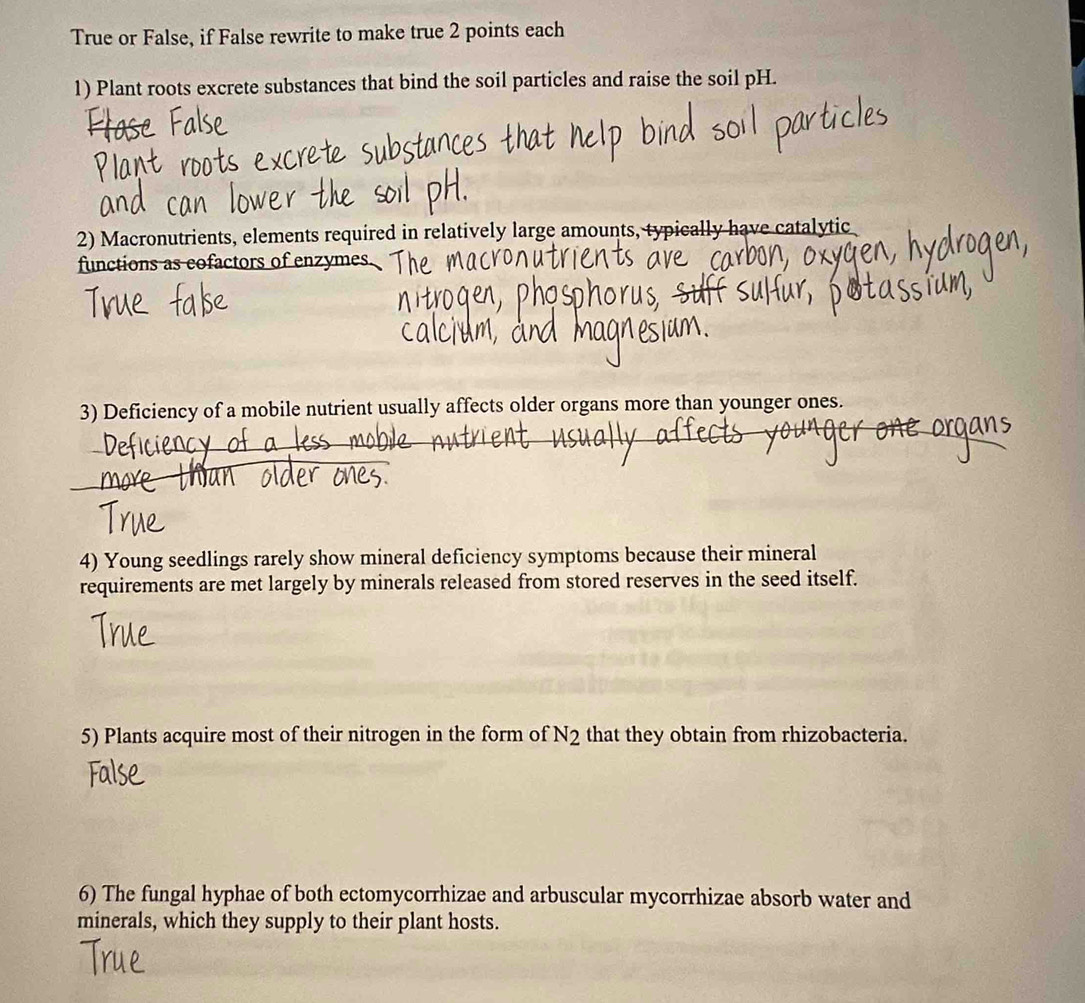 True or False, if False rewrite to make true 2 points each
1) Plant roots excrete substances that bind the soil particles and raise the soil pH.
Flase False
Plant roots excrete substances that help bind soil particles
and can lower the soil pH.
2) Macronutrients, elements required in relatively large amounts, typically have catalytic
functions as cofactors of enzymes. The macronutrients are carbon, oxygen, hydrogen,
True false nitrogen, phosphorus, sulf sulfur, potassium,
calcium, and magnesium.
3) Deficiency of a mobile nutrient usually affects older organs more than younger ones.
Deficiency of a less mobile nutrient usually affects younger one organs
more than older ones.
True
4) Young seedlings rarely show mineral deficiency symptoms because their mineral
requirements are met largely by minerals released from stored reserves in the seed itself.
True
5) Plants acquire most of their nitrogen in the form of N2 that they obtain from rhizobacteria.
False
6) The fungal hyphae of both ectomycorrhizae and arbuscular mycorrhizae absorb water and
minerals, which they supply to their plant hosts.
True